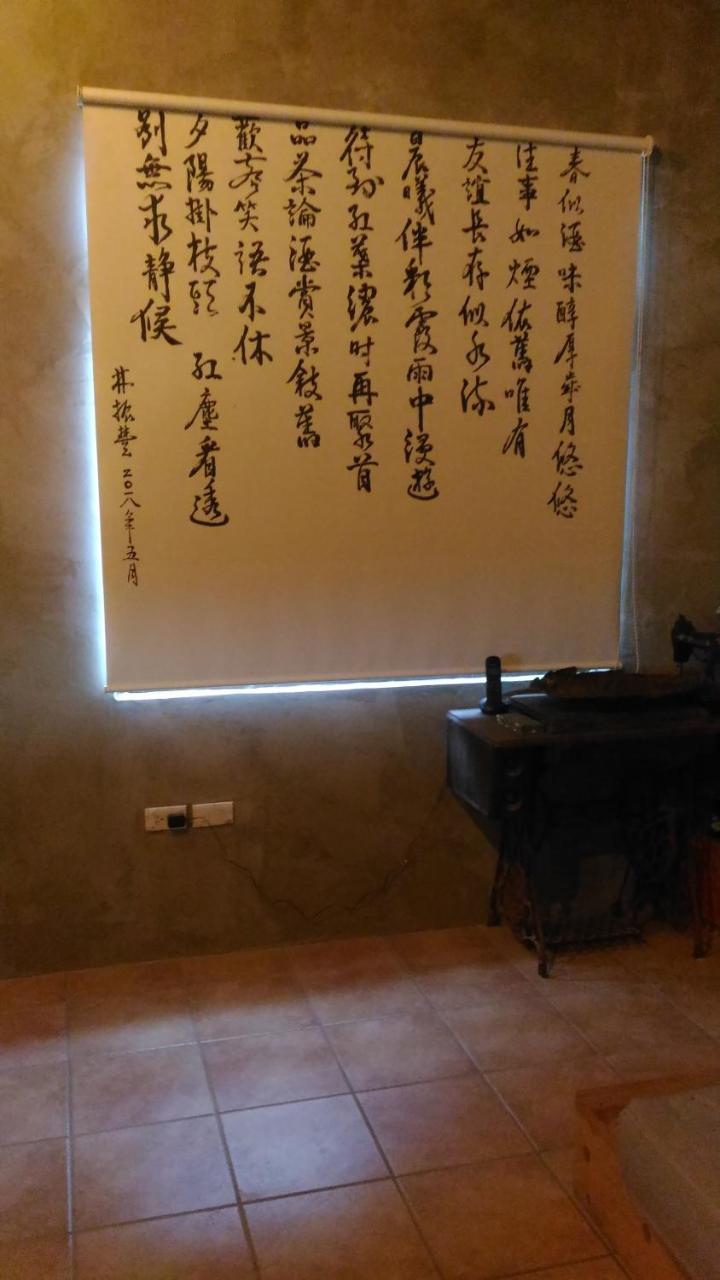 春似酒味醇厚歲月悠悠
往事如煙依舊唯有
友誼長存似水流
晨曦伴彩霞雨中漫遊
待到紅葉濃時再聚首
品茶論酒賞景敘舊
歡聲笑語不休
夕陽掛枝頭 紅塵看透
別無求靜候
林振豐二○一八年五月